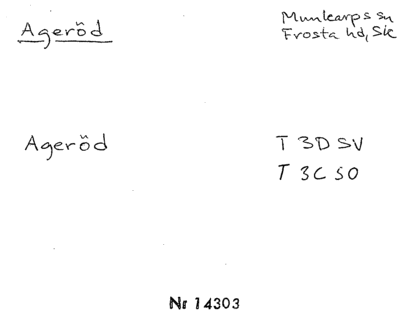 Ageröd
Munkarps sn
Frosta hd, Sk
Ageröd
T 3D SV
T 3C SO
Nr 14303